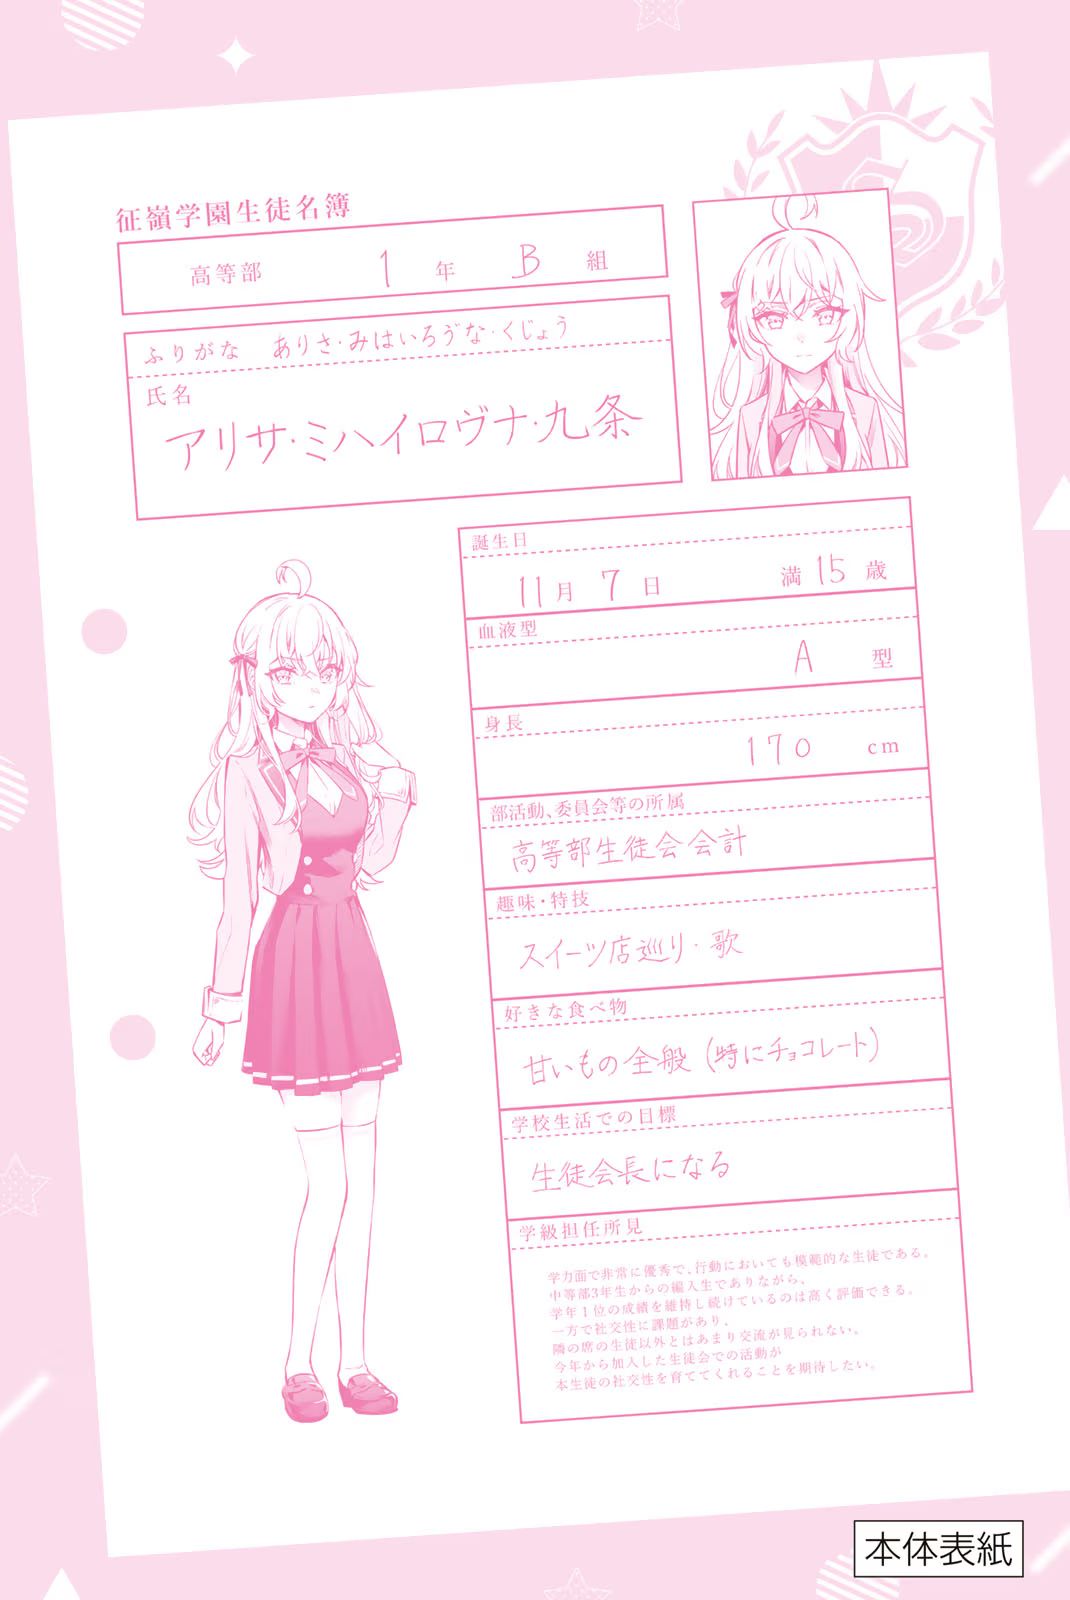 征嶺学園生徒名簿
高等部 1 年 B 組
ふりがな ありさ・みはいろゔな・くじょう
氏名
アリサ・ミハイロヴナ・九条
誕生日
11月 7日 満 15 歳
血液型
A 型
身長
170 cm
部活動、委員会等の所属
高等部生徒会会計
趣味・特技
スイーツ店巡り・歌
好きな食べ物
甘いもの全般(特にチョコレート)
学校生活での目標
生徒会長になる
学級担任所見
学力面で非常に優秀で、行動においても模範的な生徒である。
中等部3年生からの編入生でありながら、
学年1位の成績を維持し続けているのは高く評価できる。
一方で社交性に課題があり、
隣の席の生徒以外とはあまり交流が見られない。
今年から加入した生徒会での活動が
本生徒の社交性を育ててくれることを期待したい。
本体表紙